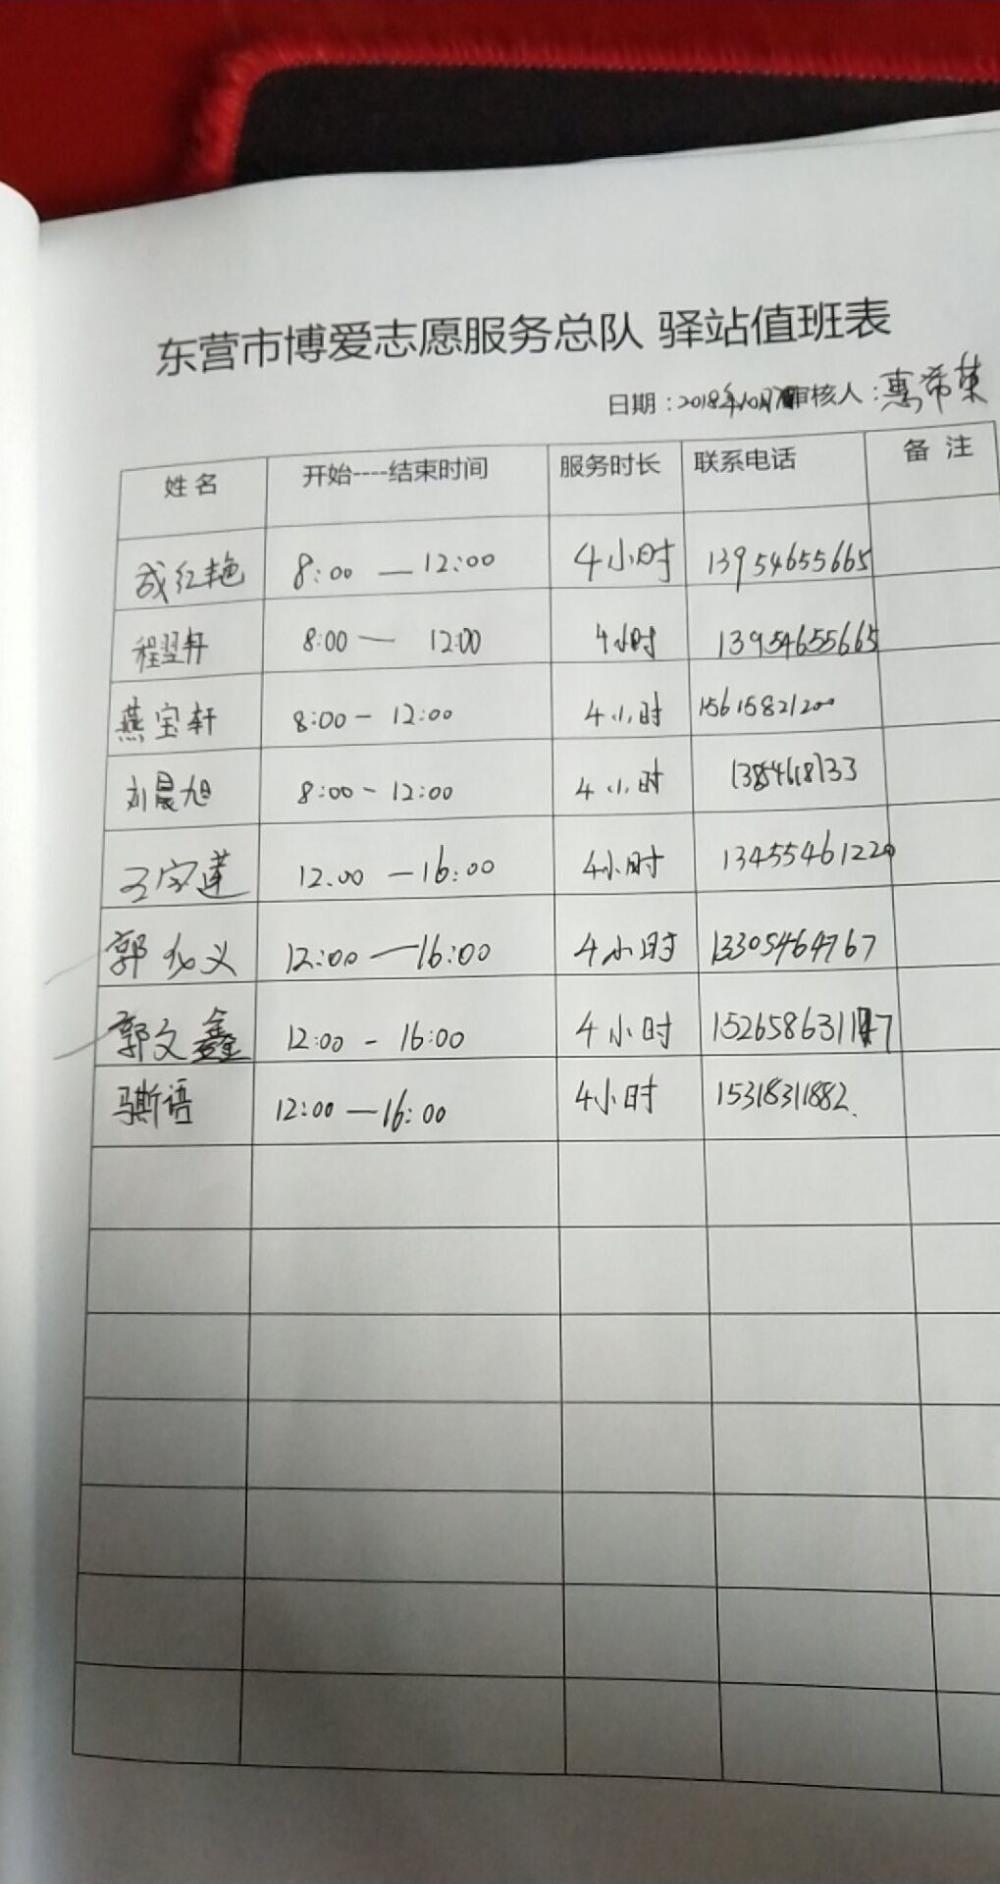 东营市博爱志愿服务总队 驿站值班表
日期：2018年10月7日 审核人：惠希荣
姓名 开始----结束时间 服务时长 联系电话 备 注
成红艳 8:00 — 12:00 4小时 13954655665
程翌轩 8:00 — 12:00 4小时 13954655665
燕宝轩 8:00 - 12:00 4小时 15615821200
刘晨旭 8:00 - 12:00 4小时
王家莲 12.00 — 16:00 4小时 13455461220
郭 义 12:00 — 16:00 4小时 13305464767
郭文鑫 12:00 - 16:00 4小时
马斯语 12:00 — 16:00 4小时 15318311882.